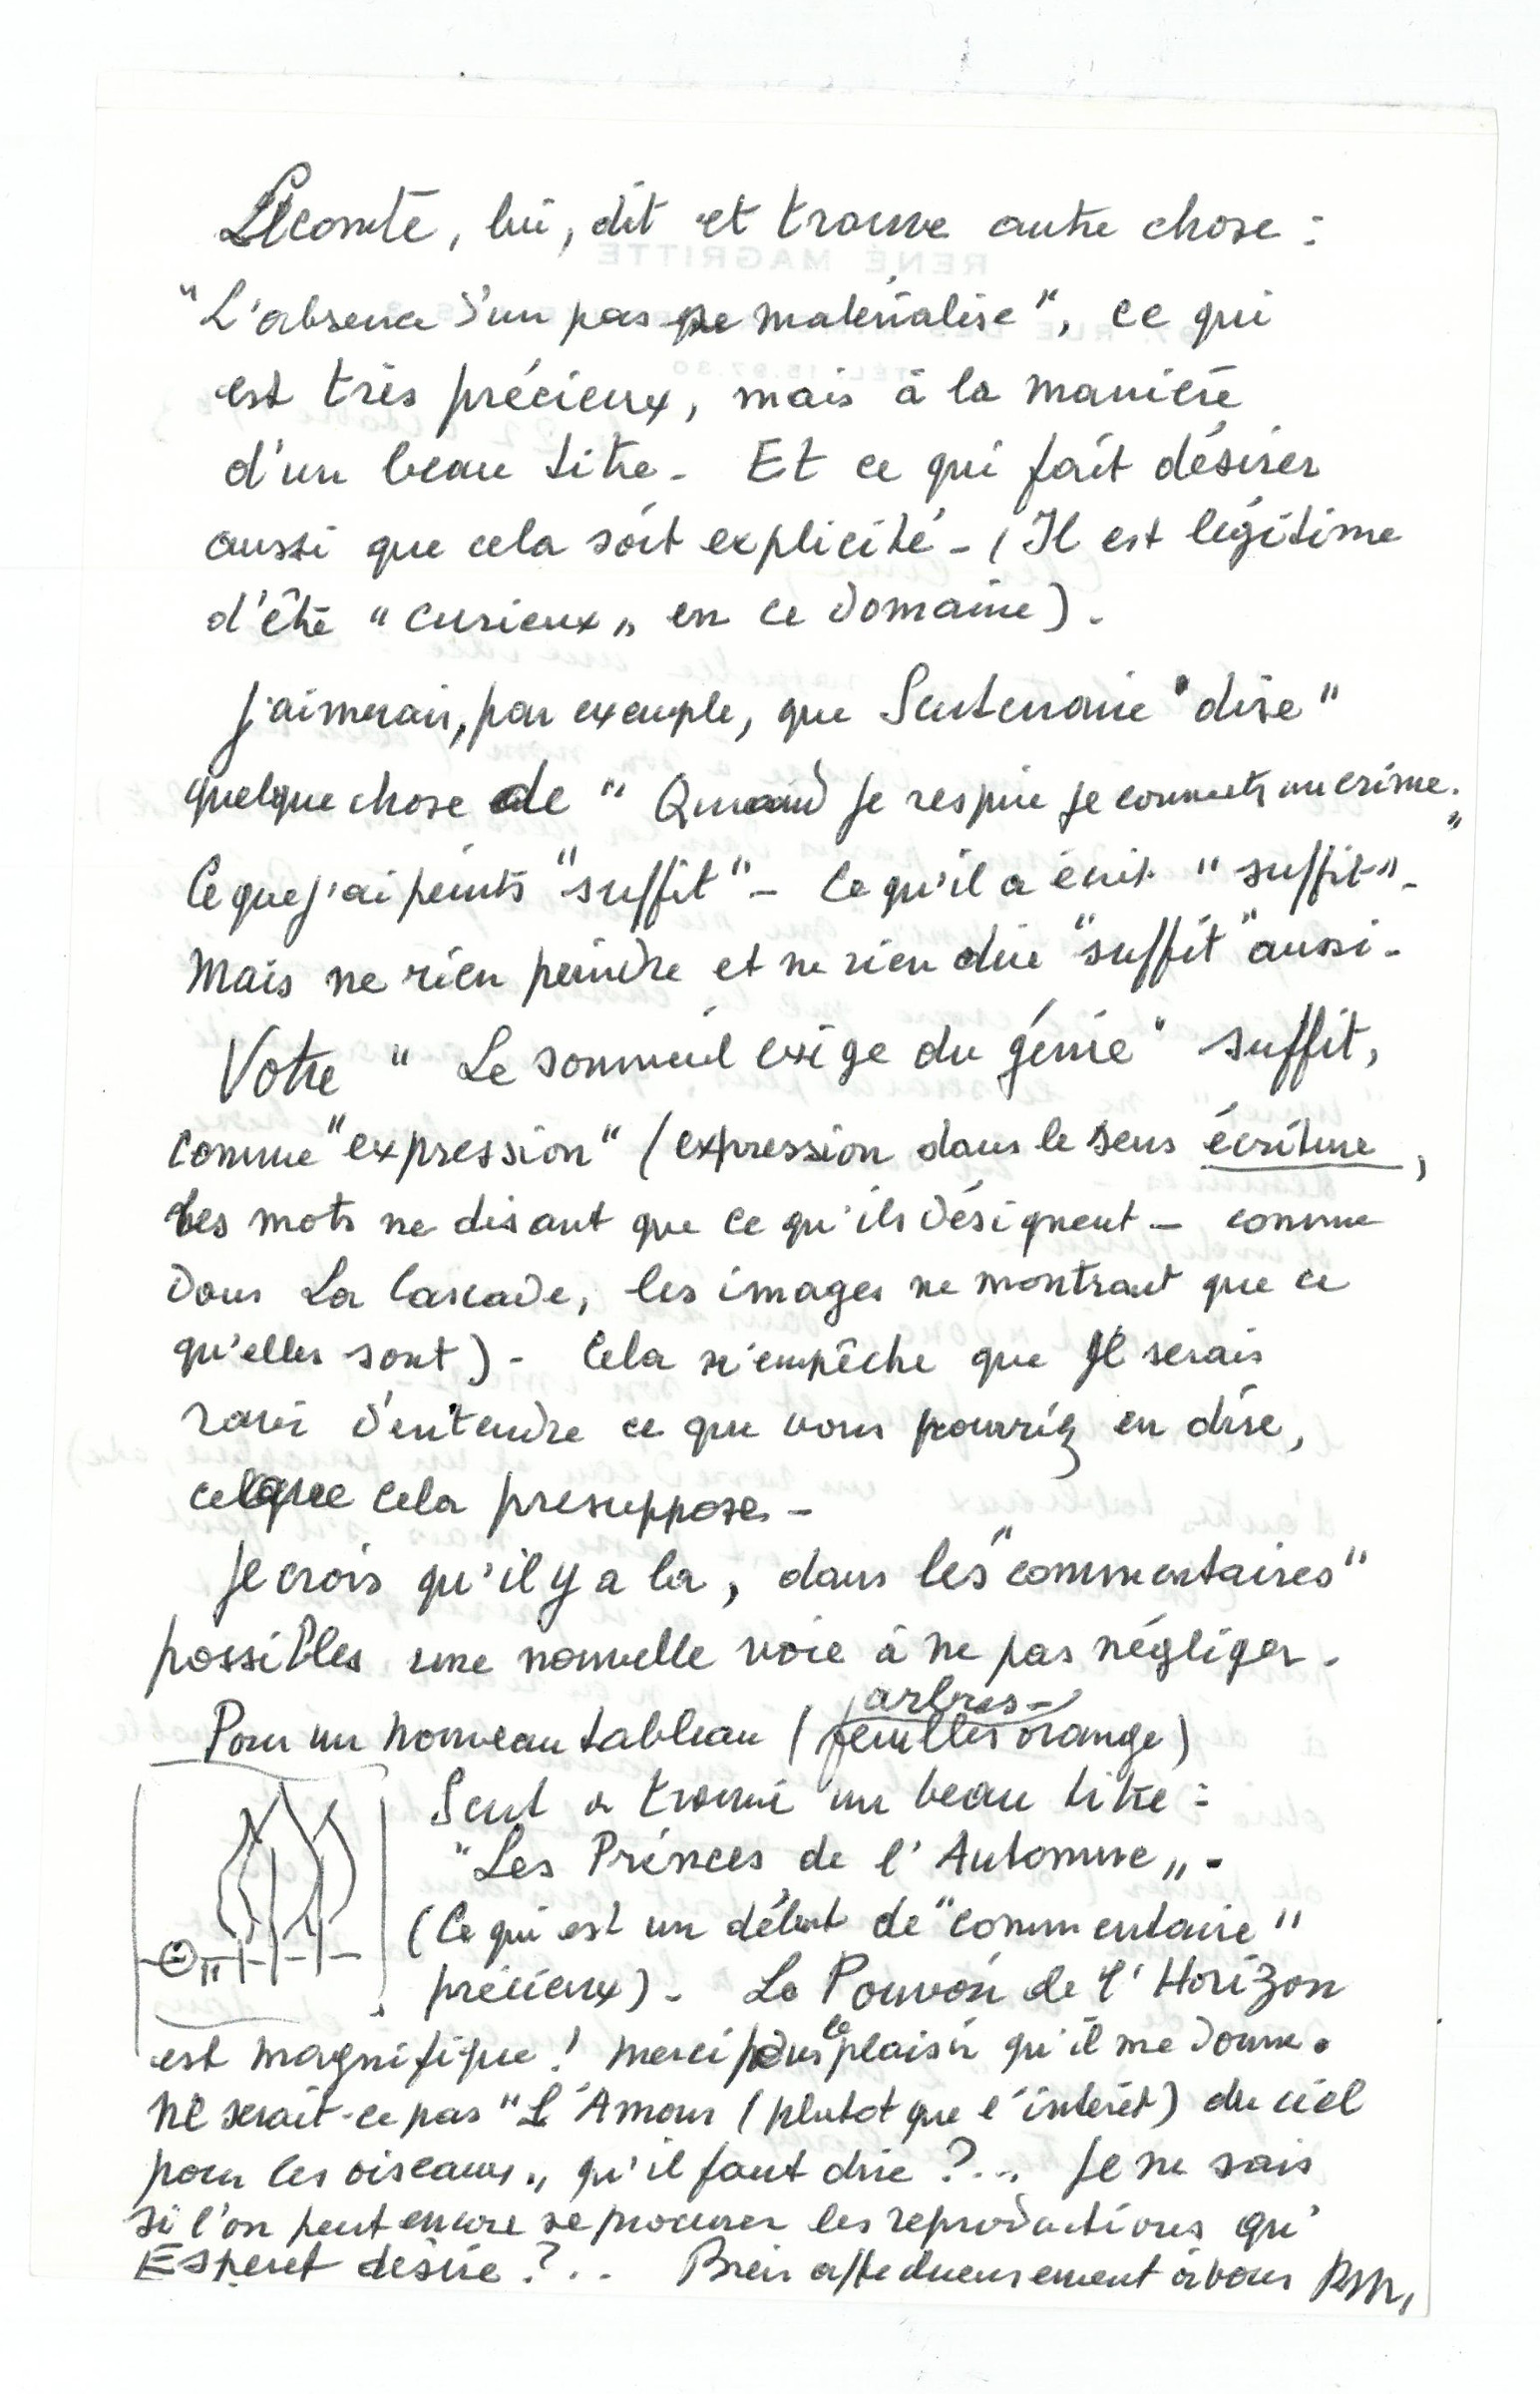 Lecomte, lui, dit et trouve autre chose :
"L'absence d'un pas se matérialise", ce qui
est très précieux, mais à la manière
d'un beau titre - Et ce qui fait désirer
aussi que cela soit explicité - (Il est légitime
d'être "curieux" en ce domaine).
J'aimerais, par exemple, que Scutenaire "dise"
quelque chose de "Quand je respire je commets un crime."
Ce que j'ai peints "suffit" - Ce qu'il a écrit "suffit" -
Mais ne rien peindre et ne rien dire "suffit" aussi -
Votre "Le sommeil exige du génie" suffit,
comme "expression" (expression dans le sens écriture,
Les mots ne disant que ce qu'ils désignent - comme
dans La Cascade, les images ne montrant que ce
qu'elles sont) - Cela n'empêche que je serais
ravi d'entendre ce que vous pourriez en dire,
ce que cela presuppose -
Je crois qu'il y a la, dans les "commentaires"
possibles une nouvelle voie à ne pas négliger -
arbres -
Pour un nouveau tableau (feuilles orange)
Scut a trouvé un beau titre :
"Les Princes de l'Automne" -
(Ce qui est un début de "commentaire"
précieux) - Le Pouvoir de l'Horizon
est magnifique ! merci pour le plaisir qu'il me donne.
Ne serait-ce pas "L'Amour (plutot que l'intérêt) du ciel
pour les oiseaux" qu'il faut dire ?... Je ne sais
si l'on peut encore se procurer les reproductions qu'
Esperet désire ?.. Bien affectueusement à vous RM,
RENÉ MAGRITTE